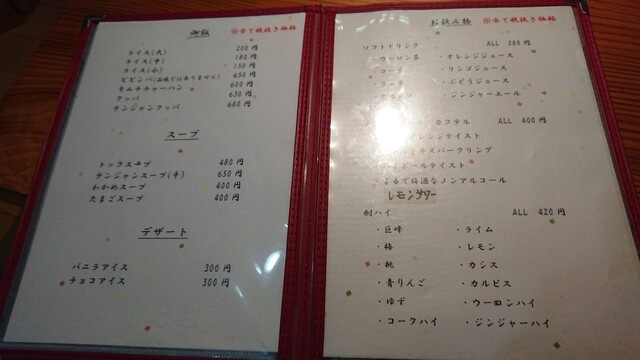 御飯 ※全て税抜き価格
ライス(大) 200円
ライス(中) 180円
ライス(小) 150円
ビビンバ(石焼ではありません) 650円
キムチチャーハン 600円
クッパ 630円
テンジャンクッパ 680円
スープ
トックスープ 480円
テンジャンスープ(辛) 650円
わかめスープ 400円
たまごスープ 400円
デザート
バニラアイス 300円
チョコアイス 300円
お飲み物 ※全て税抜き価格
ソフトドリンク ALL 280円
・ウーロン茶 ・オレンジジュース
・コーラ ・リンゴジュース
・ぶどうジュース
・ジンジャーエール
カクテル ALL 400円
レンジテイスト
スパークリング
ボールテイスト
・まるで梅酒なノンアルコール
レモンサワー
酎ハイ ALL 420円
・巨峰 ・ライム
・梅 ・レモン
・桃 ・カシス
・青りんご ・カルピス
・ゆず ・ウーロンハイ
・コークハイ ・ジンジャーハイ